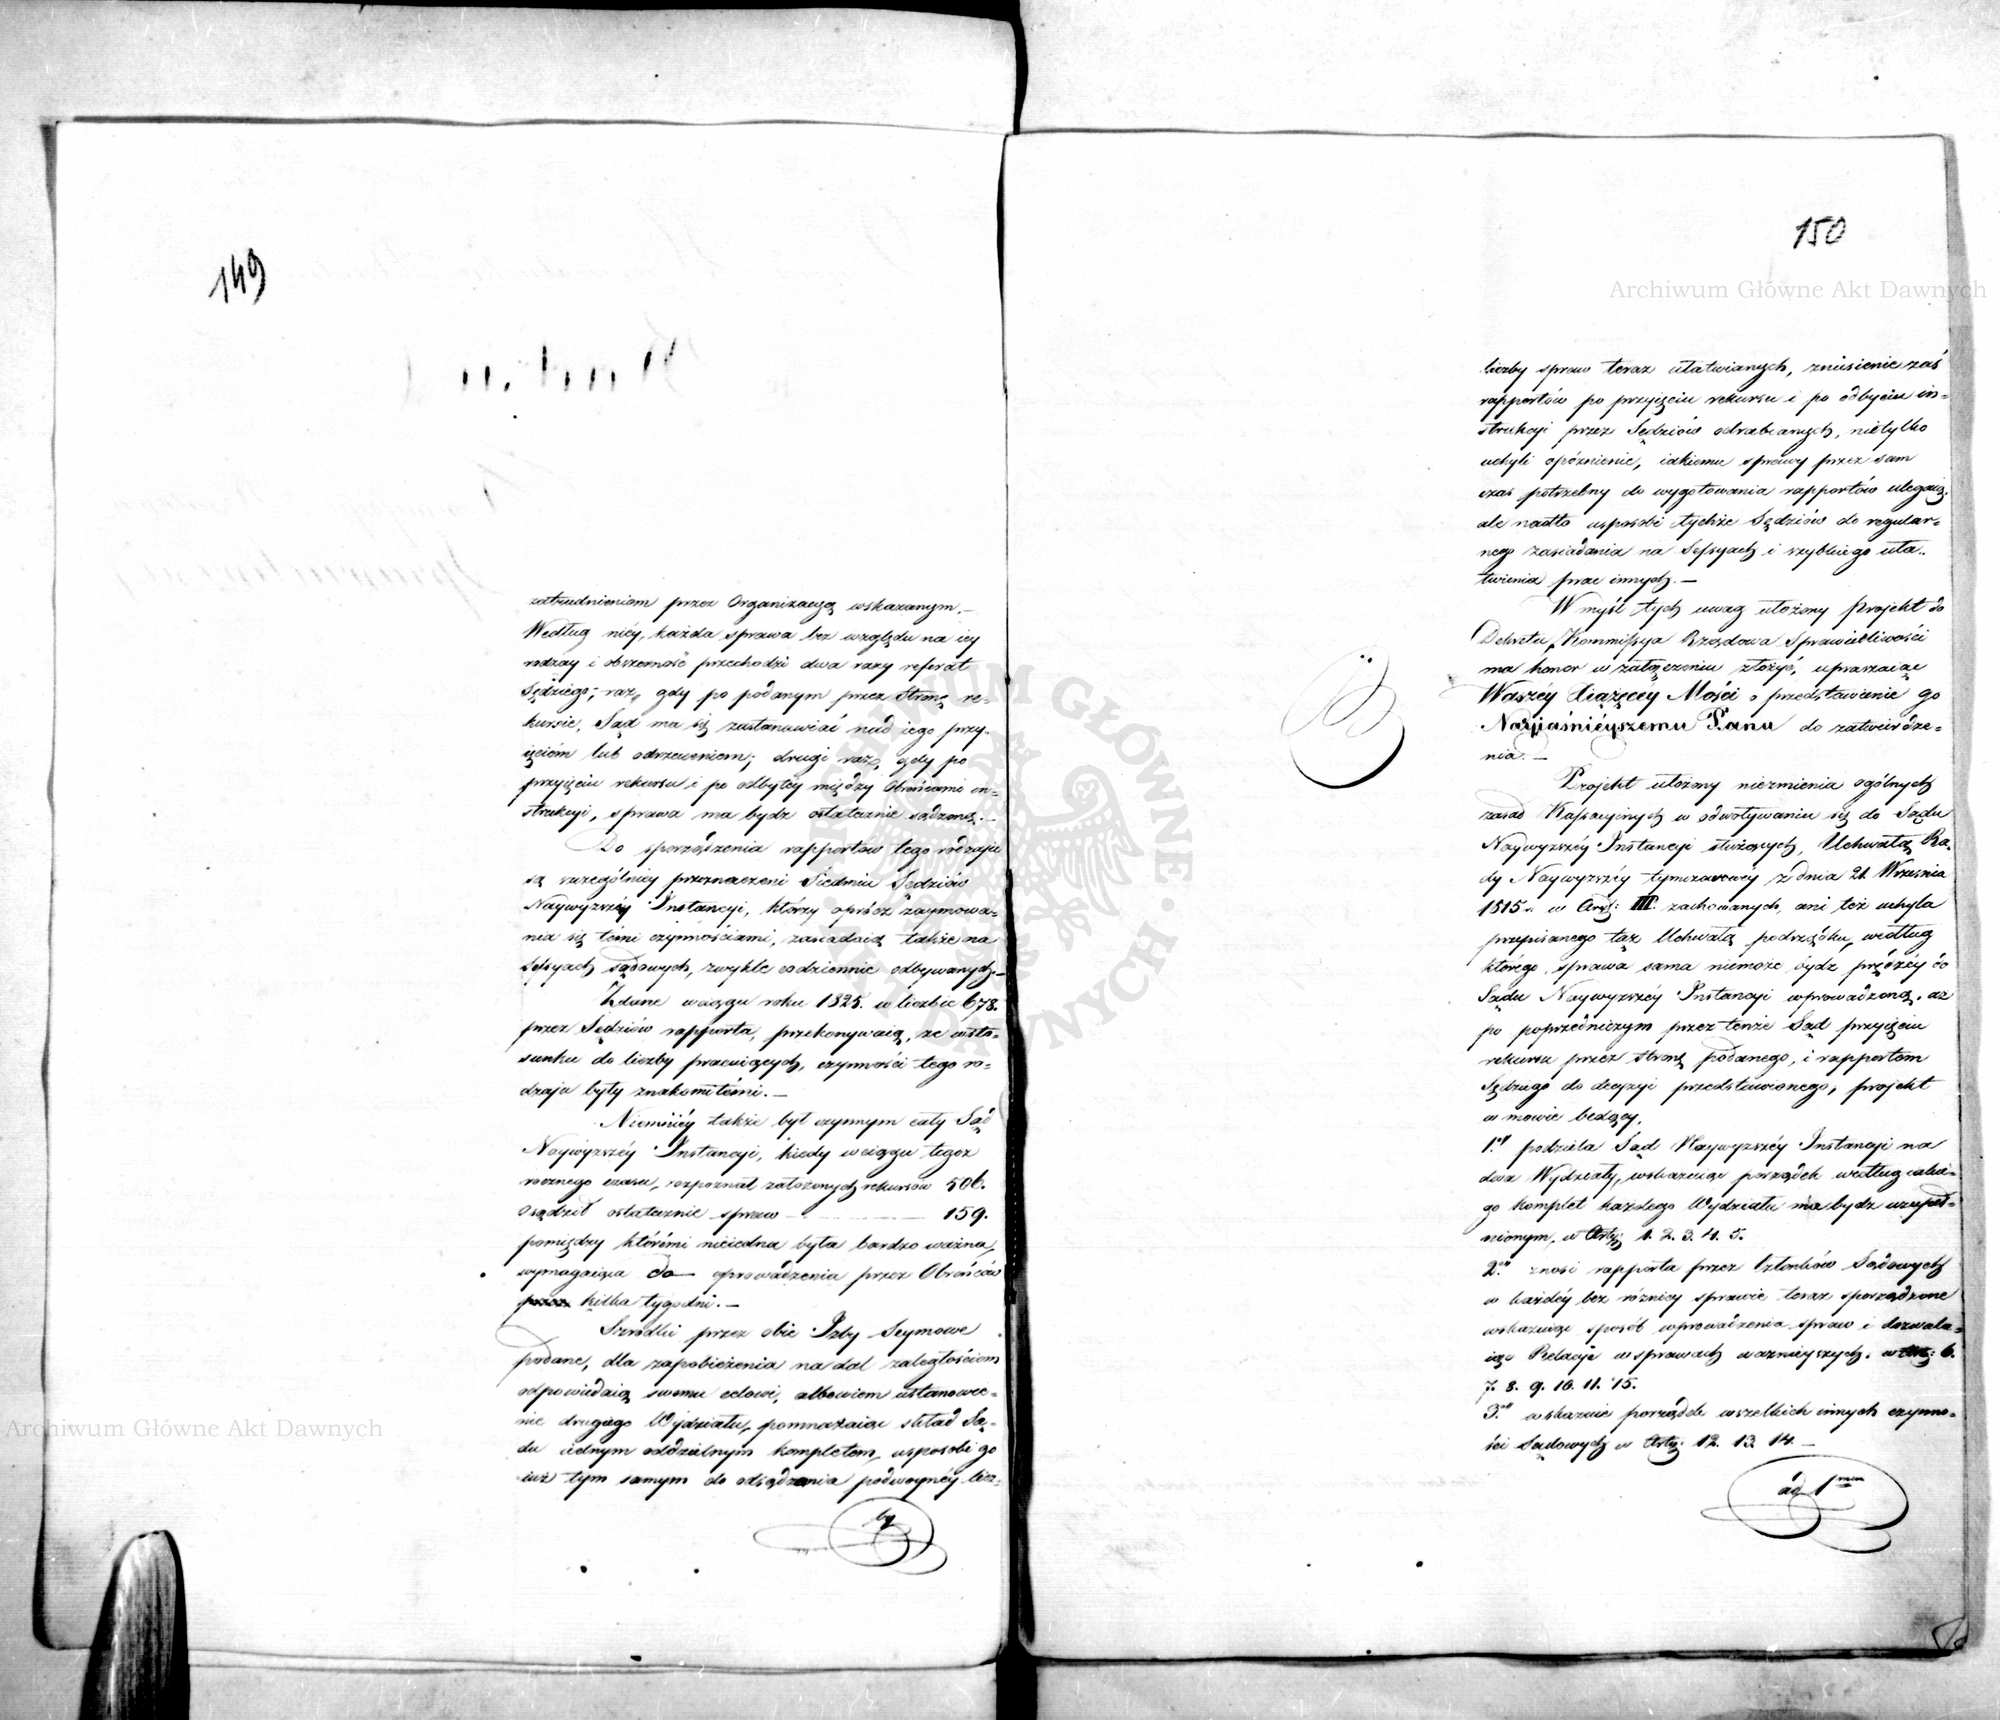 149
zatrudnieniom przez Organizacyą wskazanym. —
Według niéy, każda sprawa bez względu na iey
rodzay i obszerność przechodzi dwa razy referat
Sędziego; raz, gdy po podanym przez Stronę re-
kursie, Sąd ma się zastanowiać nad iego przy-
ięciem lub odrzuceniem; drugi raz, gdy po
przyięciu rekursu i po odbytéy między Obrońcami in-
strukcyi, sprawa ma bydz ostatecznie sądzoną. —
Do sporządzenia rapportów tego rodzaju
są szczególniey przeznaczeni Siedmiu Sędziów
Naywyzszéy Instancyi, którzy oprócz zaymowa-
nia się témi czynnościami, zasiadaią także na
Sessyach sądowych, zwykle codziennie odbywanych. —
Zdane wciągu roku 1825. w liczbie 678.
przez Sędziów rapporta, przekonywaią, ze w sto-
sunku do liczby pracuiących, czynności tego ro-
dzaju były znakomitémi. —
Niemniéy także był czynnym cały Sąd
Naywyzszéy Instancyi, kiedy wciągu tegoz
rocznego czasu, rozpoznał założonych rekursów 506.
Osądził ostatecznie spraw — — 159.
pomiędzy którémi nieiedna była bardzo ważna,
wymagaiąca do oprowadzenia przez Obrońców
przez kilka tygodni. —
Szrodki przez obie Izby Seymowe
podane, dla zapobieżenia na dal zaległościom
odpowiedaią swemu celowi, albowiem ustanowie-
nie drugiego Wydziału, pomnażaiąc skład Są-
du iednym oddzielnym kompletem, usposobi go
iuż tym samym do osądzenia podwoynéy licz-
by
150
liczby spraw teraz ułatwianych, zniesienie zaś
rapportów po przyięciu rekursu i po odbyciu in-
strukcyi przez Sędziów odrabianych, nietylko
uchyli opóznienie, iakiemu sprawy przez sam
czas potrzebny do wygotowania rapportów ulegaią,
ale nadto usposobi tychże Sędziów do regular-
nego zasiadania na Sessyach i szybkiego uła-
twienia prac innych. —
W myśl tych uwag ułożony Projekt do
Dekretu, Kommissya Rządowa Sprawiedliwości
ma honor w załączeniu złożyć, upraszaiąc
Waszéy Xiążęcéy Mości o przedstawienie go
Nayiaśniéyszemu Panu do zatwierdze-
nia. —
Projekt ułożony niezmienia ogólnych
zasad Kassacyinych w odwoływaniu się do Sądu
Naywyzszéy Instancyi służących, Uchwałą Ra-
dy Naywyzszéy tymczasowey z dnia 21. Września
1815 r. w Art: III. zachowanych, ani też uchyla
przepisanego tąż Uchwałą porządku, według
którego, sprawa sama niemoże bydz prędzéy do
Sądu Naywyzszéy Instancyi wprowadzoną, az
po poprzedniczym przez tenże Sąd przyięciu
rekursu przez stronę podanego, i rapportem
Sędziego do decyzyi przedstawionego, projekt
w mowie będący,
1.od podziela Sąd Naywyzszéy Instancyi na
dwa Wydziały, wskazuiąc porządek według iakie-
go komplet każdego Wydziału ma bydz uzupeł-
nionym, w Arty: 1. 2. 3. 4. 5.
2.re znosi rapporta przez Członków Sądowych
w każdéy bez różnicy sprawie teraz sporządzane
wskazuiąc sposób wprowadzenia spraw i dozwala-
iąc Relacye w sprawach ważnieyszych. w Art: 6.
7. 8. 9. 10. 11. 15.
3.cie wskazuie porządek wszelkich innych czynno-
ści Sądowych w Arty: 12. 13. 14. —
ad 1mum
Archiwum Główne Akt Dawnych
Archiwum Główne Akt Dawnych
ARCHIWUM GŁÓWNE AKT DAWNYCH